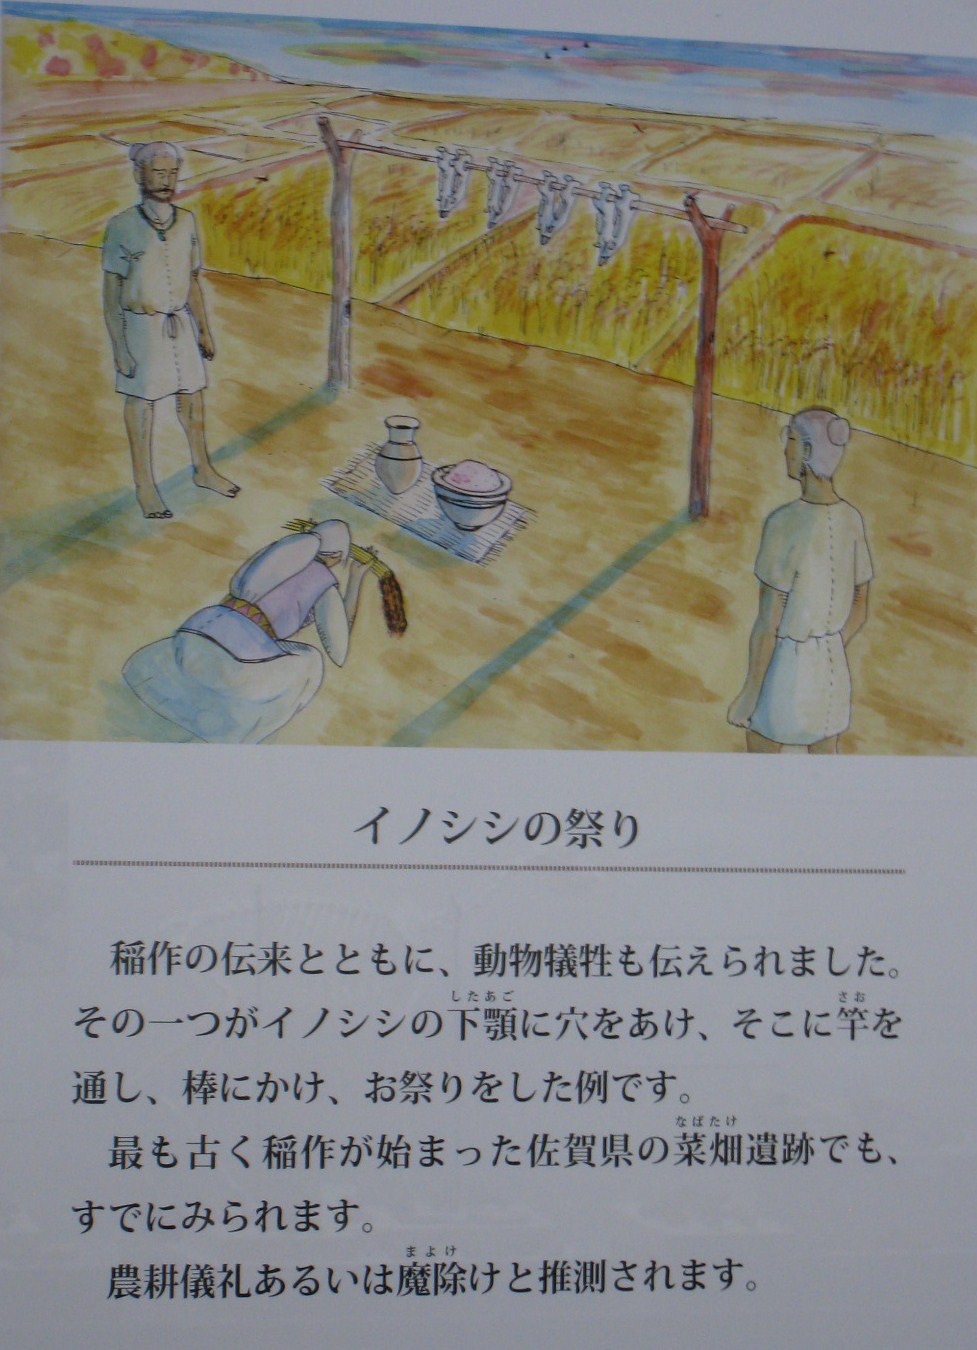 イノシシの祭り
稲作の伝来とともに、動物犠牲も伝えられました。
したあご さお
その一つがイノシシの下顎に穴をあけ、そこに竿を
通し、棒にかけ、お祭りをした例です。
なばたけ
最も古く稲作が始まった佐賀県の菜畑遺跡でも、
すでにみられます。
まよけ
農耕儀礼あるいは魔除けと推測されます。